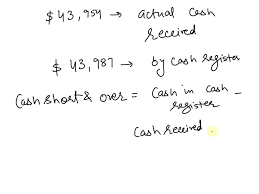 $43,954 → actual cash
received
$ 43,987 → by cash register
Cash short & over = Cash in cash -
register
Cash received